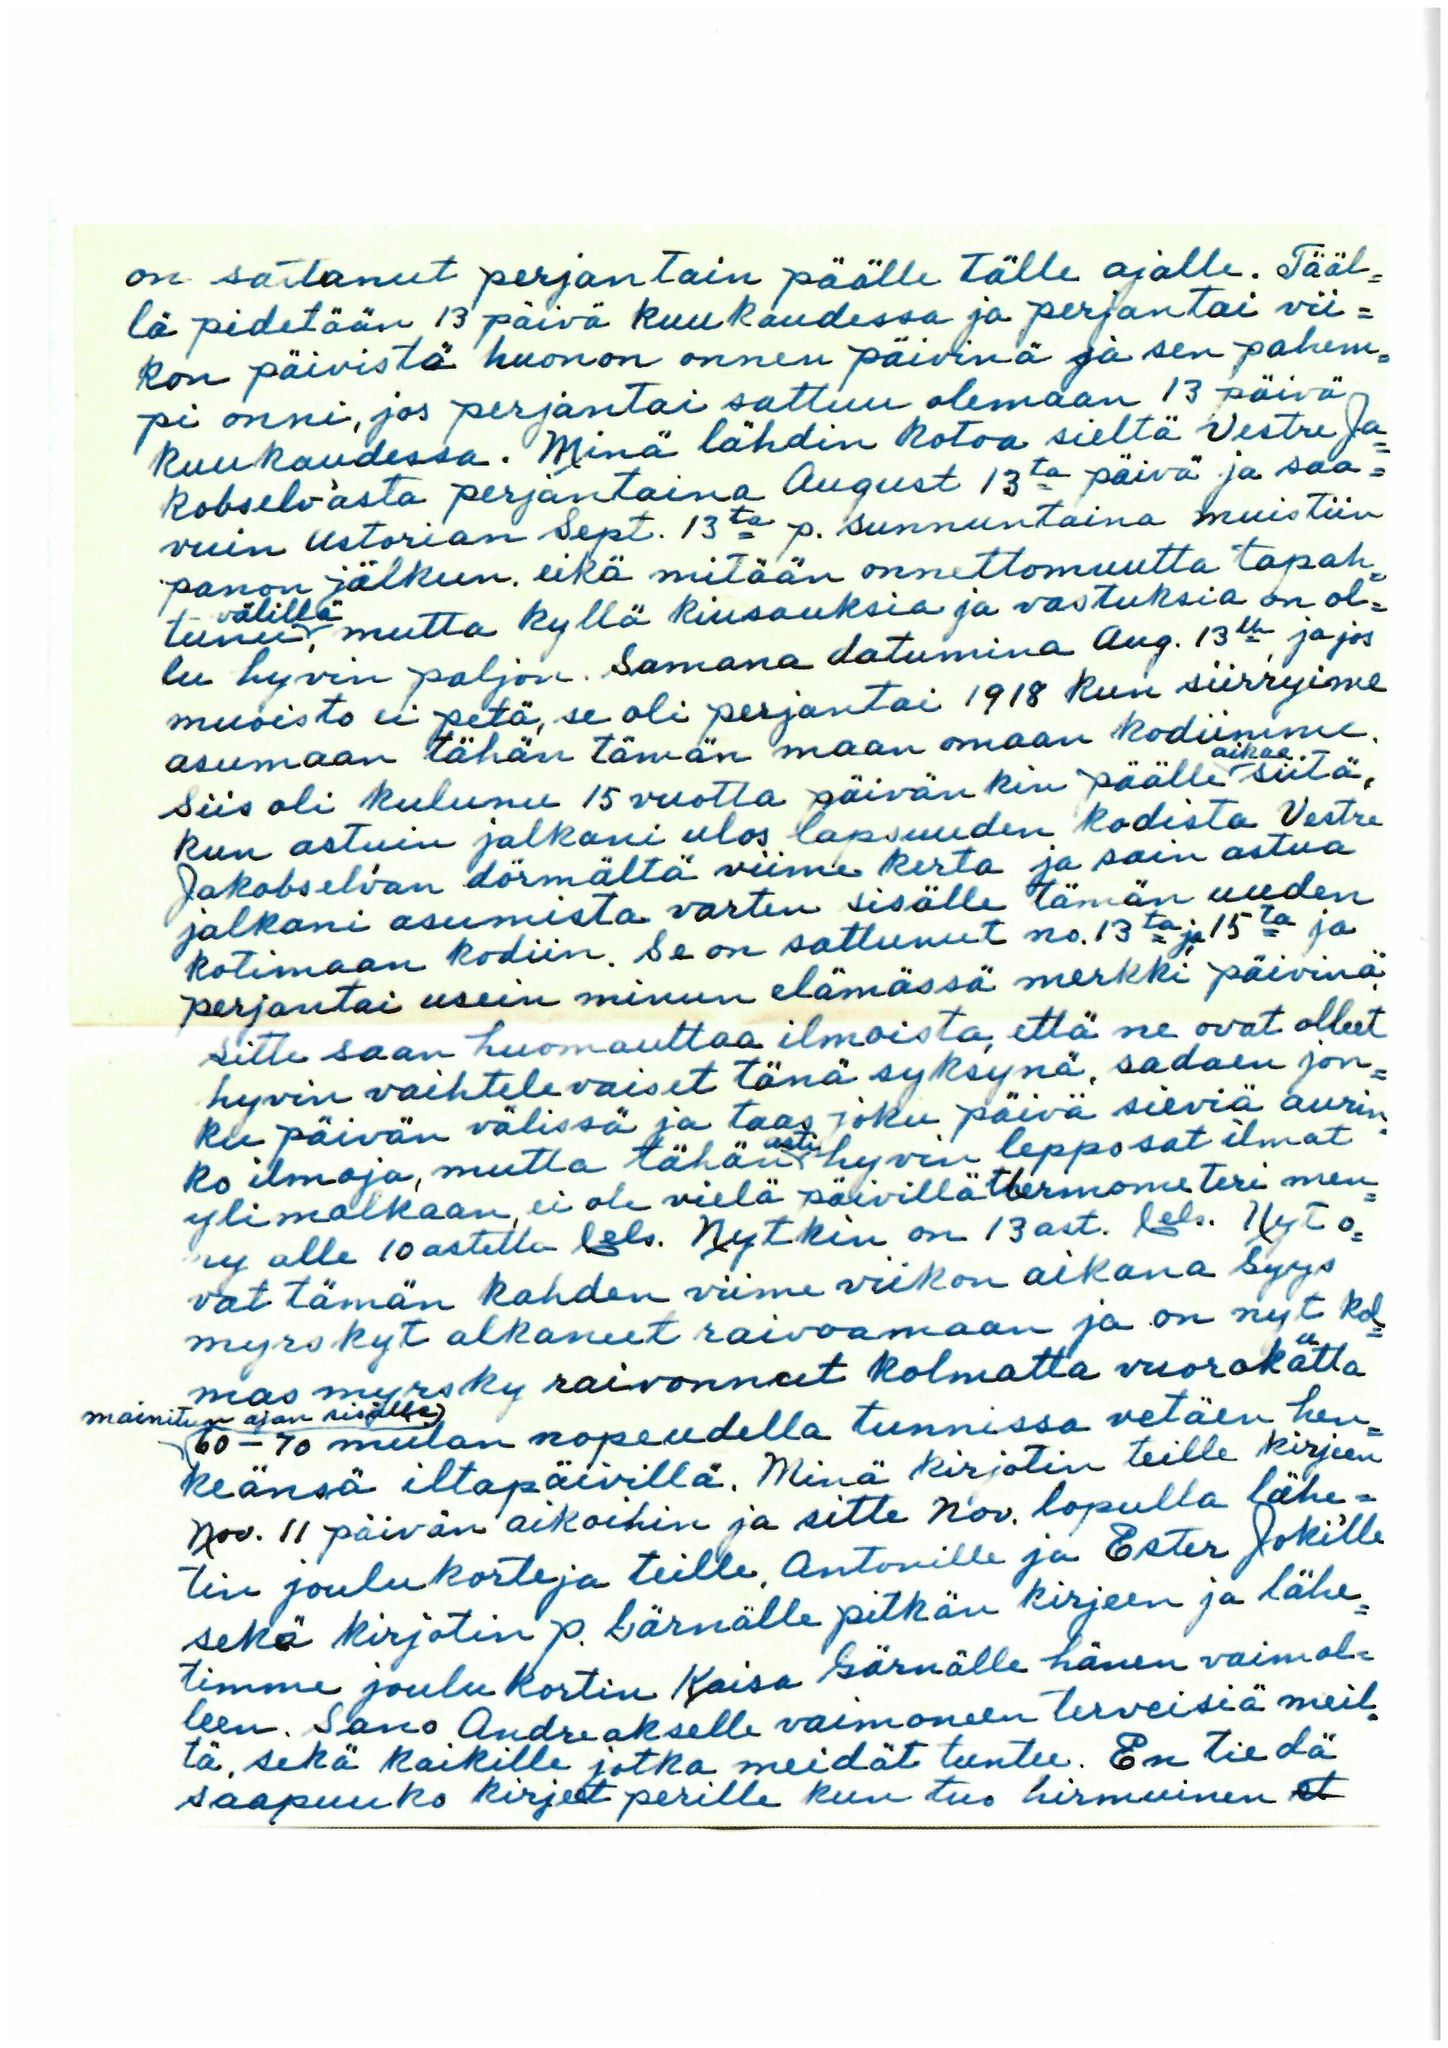 on sattanut perjantain päälle tälle ajalle. Tääl=
lä pidetään 13 päivä kuukaudessa ja perjantai vii=
kon päivistä huonon onnen päivinä ja sen pahem=
pi onni, jos perjantai sattuu olemaan 13 päivä
kuukaudessa. Minä lähdin kotoa sieltä Vestre Ja=
kobselv'asta perjantaina August 13ta päivä ja saa=
vuin Astorian Sept. 13ta p. sunnuntaina muistiin
panon jälkeen. eikä mitään onnettomuutta tapah=
välillä
tunu, mutta kyllä kiusauksia ja vastuksia on ol=
lu hyvin paljon. Samana datumina Aug. 13th ja jos
muoisto ei petä, se oli perjantai 1918 kun siirryime
asumaan tähän tämän maan omaan kodiimme.
aikaa
Siis oli kulunu 15 vuotta päivän kin päälle siitä,
kun astuin jalkani ulos lapsuuden kodista Vestre
Jakobselv'an dörmältä viime kerta ja sain astua
jalkani asumista varten sisälle tämän uuden
kotimaan kodiin. Se on sattunut no. 13ta ja 15ta ja
perjantai usein minun elämässä merkki päivinä.
Sitte saan huomauttaa ilmoista, että ne ovat olleet
hyvin vaihtelevaiset tänä syksynä, sadaen jon=
ku päivän välissä ja taas joku päivä sieviä aurin=
asti
ko ilmoja, mutta tähän hyvin lepposat ilmat
ylimalkaan, ei ole vielä päivillä thermometeri men=
ny alle 10 astetta Cels. Nyt kin on 13 ast. Cels. Nyt o=
vat tämän kahden viime viikon aikana Syys
myrskyt alkaneet raivoamaan ja on nyt kol=
mas myrsky raivonnut kolmatta vuorokätta
mainitun ajan sisälle
60-70 meilan nopeudella tunnissa vetäen hen=
keänsä iltapäivillä. Minä kirjotin teille kirjeen
Nov. 11 päivän aikoihin ja sitte Nov. lopulla lähe=
tin joulukorteja teille, Antonille ja Ester Joki'lle
sekä kirjotin p. Gärnälle pitkän kirjeen ja lähe=
timme joulukortin Kaisa Gärnälle hänen vaimol=
leen. Sano Andreakselle vaimoneen terveisiä meil=
tä, sekä kaikille jotka meidät tuntee. En tiedä
saapuuko kirjeet perille kun tuo hirmuinen